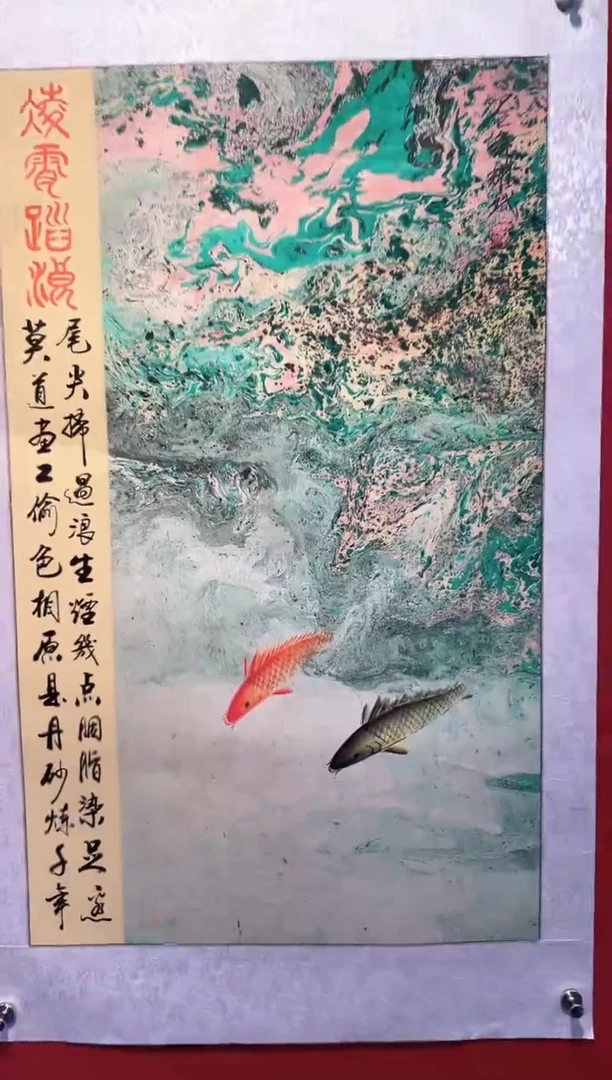 凌霄踏浪
尾尖掃過浪生煙幾点胭脂染
莫道画工偷色相原是丹砂炼千年